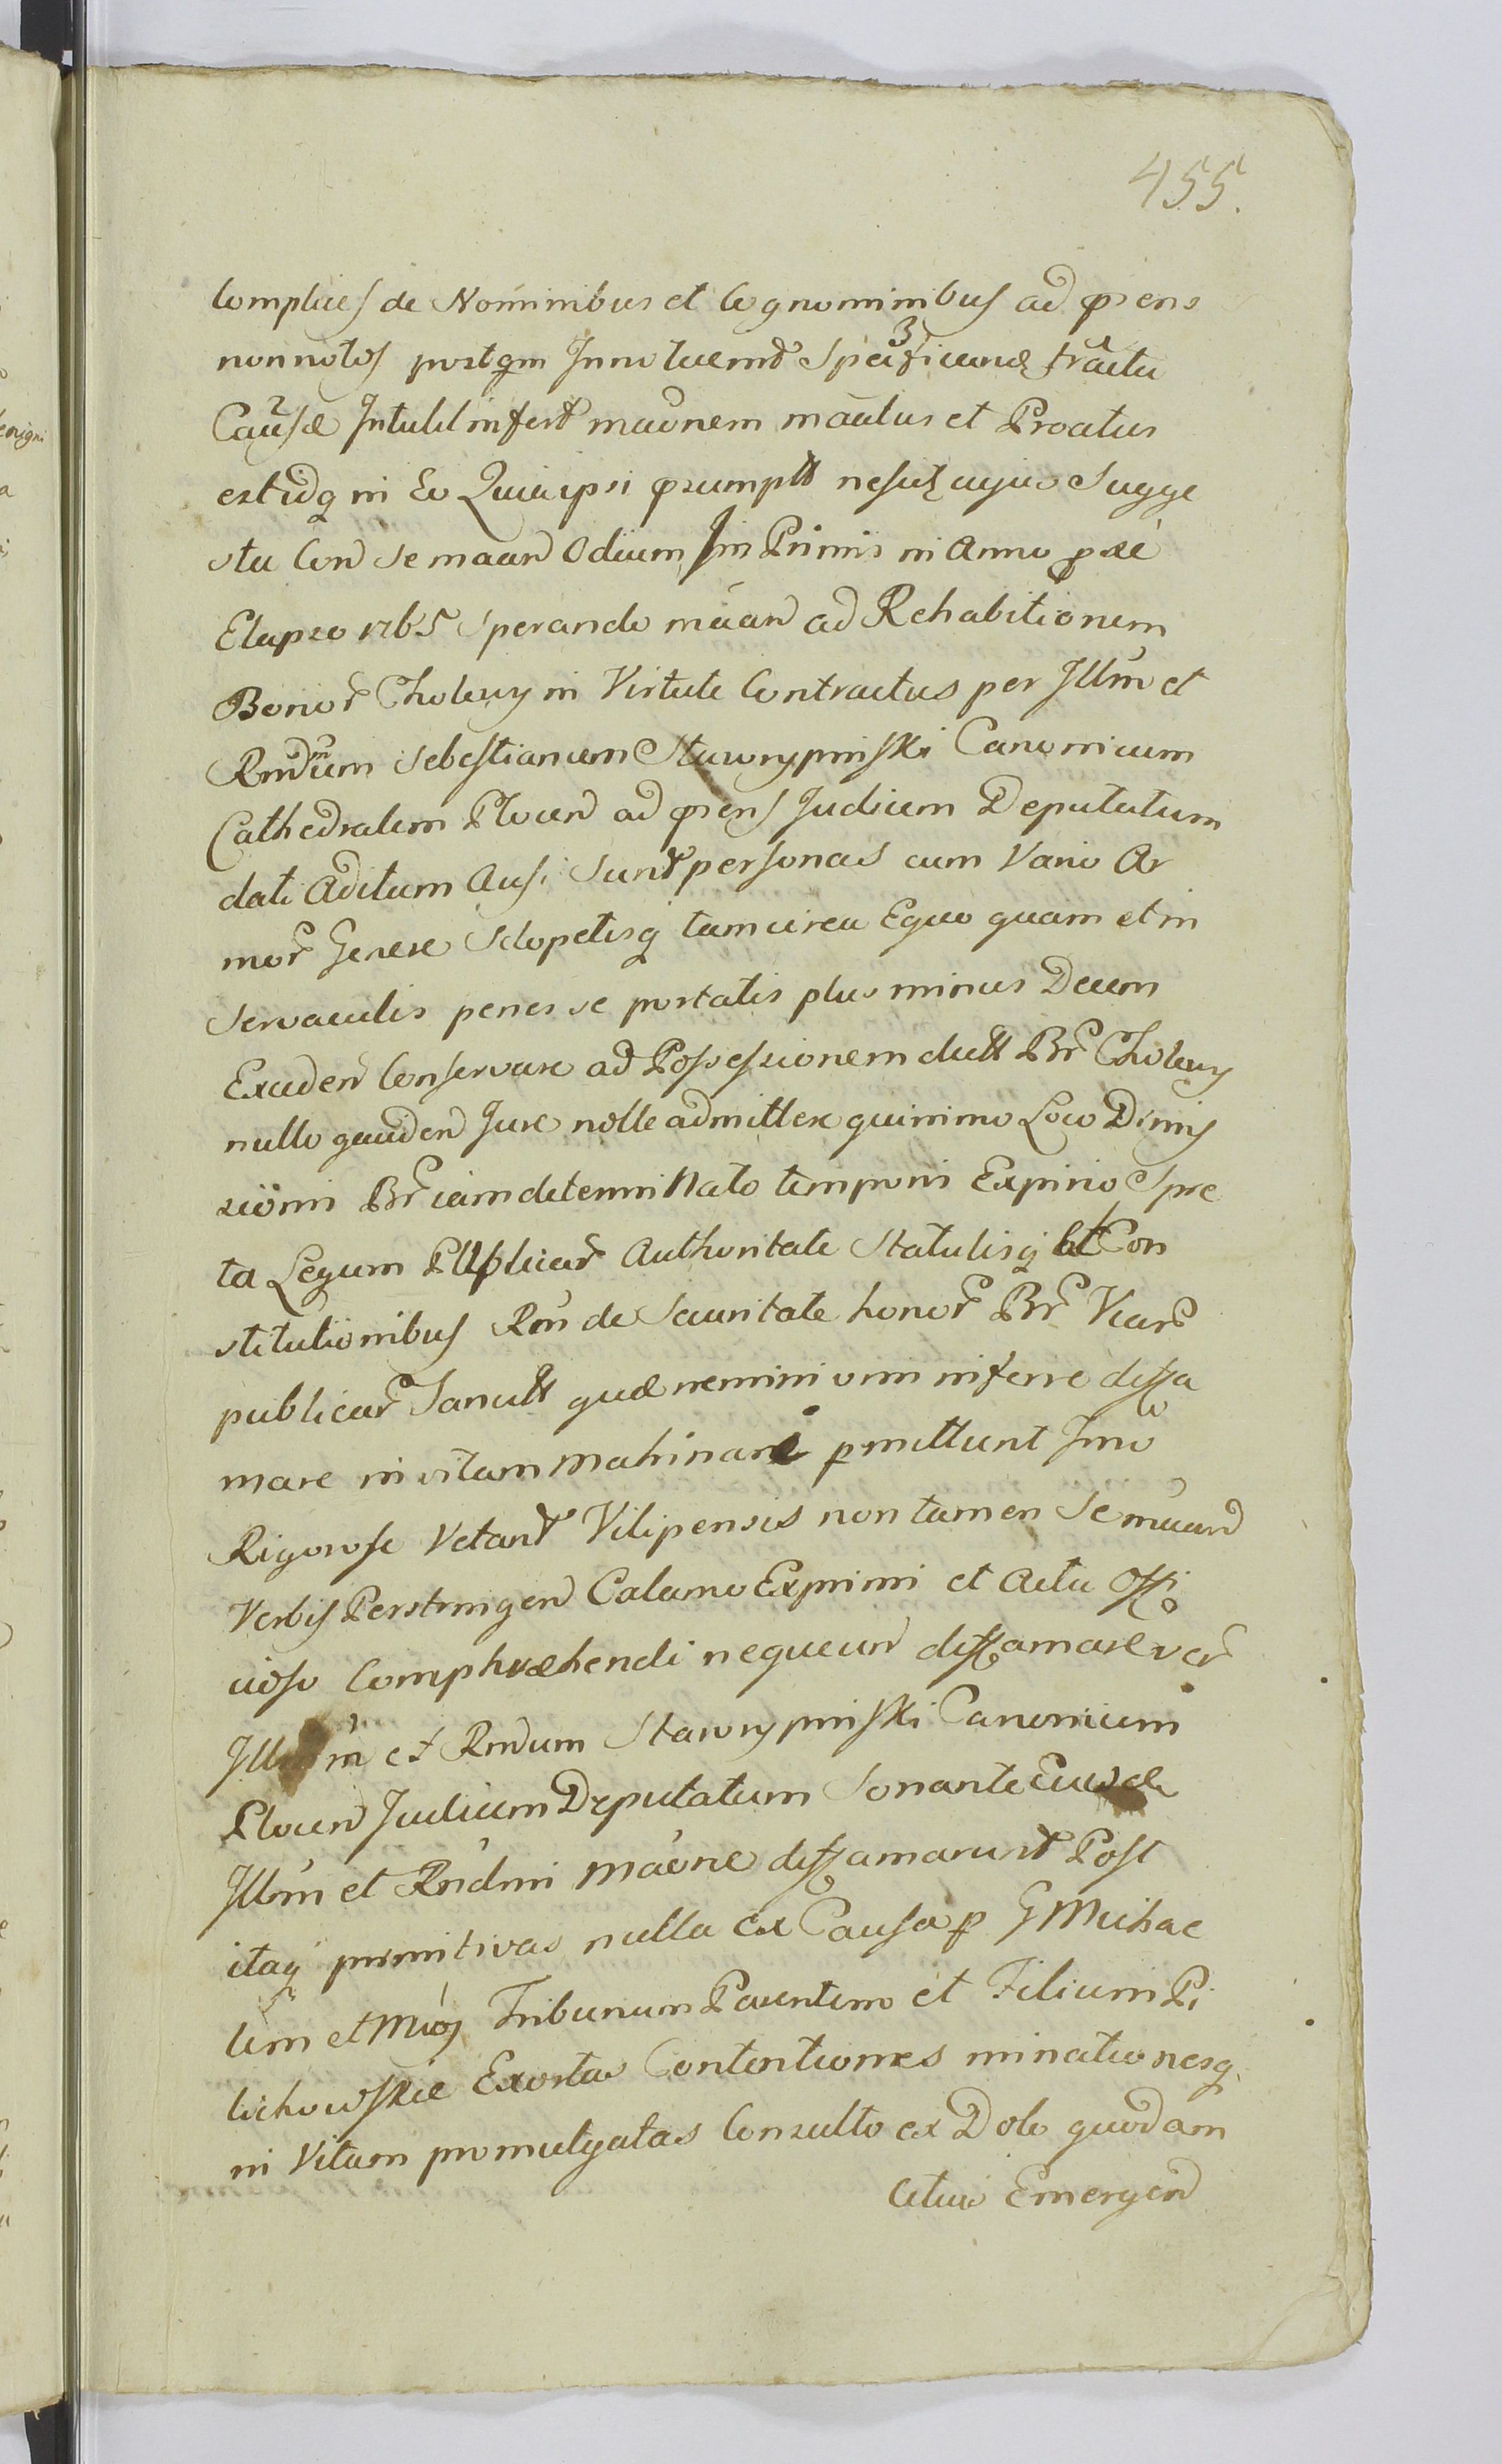 455.
Complices de Nominibus et Cognominibus ad prens
non notos postqm Innotuernt Specificand tractu
Causæ Intulit infert mãonem mãatus et Proatus
est idq in Eo Quia ipsi prsumptt
stu Con se maan Odium Im Primis in Anno præ
Elapso 1765 Sperando maan ad Rehabitionem
Bonor Cholewy in Virtute Contractus per Illm et
Rmdum Sebestianum Staworypinski Canonicum
Cathedralem Plocen ad prens Judicem Deputatum
dati Aditum Ausi Sunt personas cum Vario Ar
mor Genere Sclopetisq tam circa Equo quam et in
Servaculis penes se portatis plus minus Decem
Exceden Conservare ad Possessionem dictt Br Cholewy
nullo gauden Jure nolle admittere quinimo Loco Dimis
sioni Br iam determiNato tempori Expirio Spre
ta Legum PUplicar Authoritate Statutisq et Con
stitutionibus Rni de Securitate honor Br Viar
publicar Sancitt quæ nemini vim inferre diffa
mare in vitam Mahinare pmittunt Imo
Rigorose Vetant Vilipensis non tamen Se maan
Verbis Perstringen Calamo Exprimi et Actu Offi
cioso Comphræhendi nequeun diffamare ver
Illm et Rmdum Staworypinski Canonicum
Plocen Judicem Deputatum Sonante
Illm et Rndmi Mãone diffamarunt Post
itaq primitivas nulla ex Causa p G Michae
lem et Mico Tribunum Parentem et Filium Pi
lichowskie Exortas Contentiones minationesq
in Vitam promulgatas Consulto ex Dolo quodam
Citius Emergen